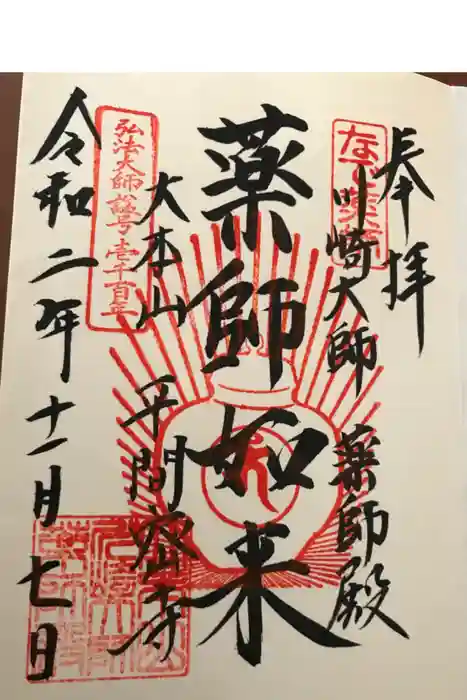 奉拝
川崎大師 薬師殿
なで薬師
薬師如来
大本山 平間密寺
弘法大師諡号壱千百年
令和二年十一月七日